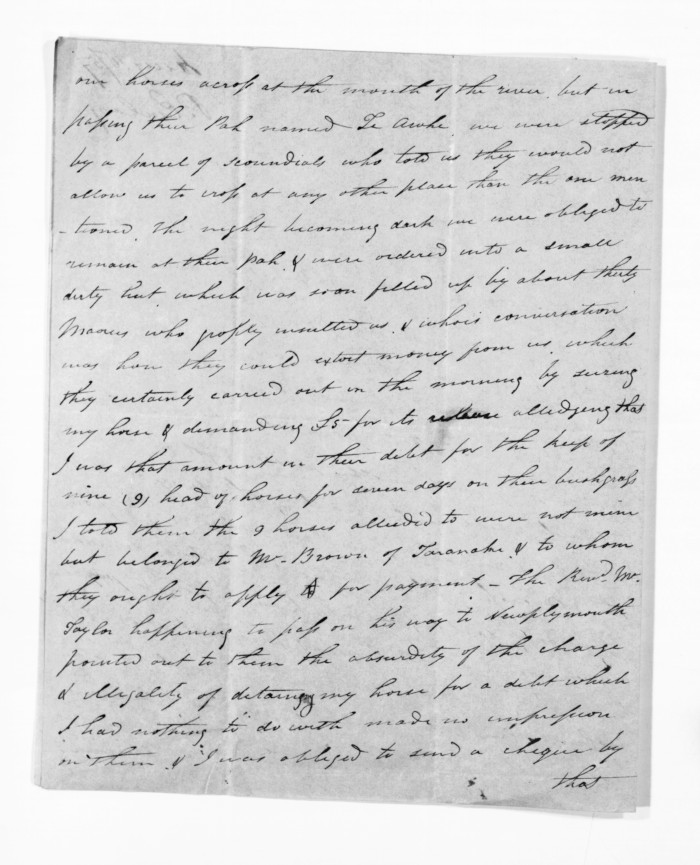 our horses across at the mouth of the river. but in
passing their Pah named Te Awhe. we were stopped
by a parcel of scoundrals who told us they would not
allow us to cross at any other place than the one men
-tioned. The night becoming dark we were obliged to
remain at their pah. & were ordered into a small
dirty hut. which was soon filled up by about thirty
Maories who grossly insulted us. & whois conversation
was how they could extort money from us. which
they certainly carried out in the morning by seizing
my horse & demanding £5 for its release alledging that
I was that amount in their debt for the keep of
nine (9) head of horses for seven days on their bushgrass
I told them the 9 horses alluded to were not mine
but belonged to Mr. Brown of Taranake. & to whom
they ought to apply for payment - The Revd. Mr.
Taylor happening to pass on his way to Newplymouth
pointed out to them the absurdity of the charge
& illegality of detaing my horse for a debt which
I had nothing to do with made no impression
on them. & I was obliged to send a cheque by
thos